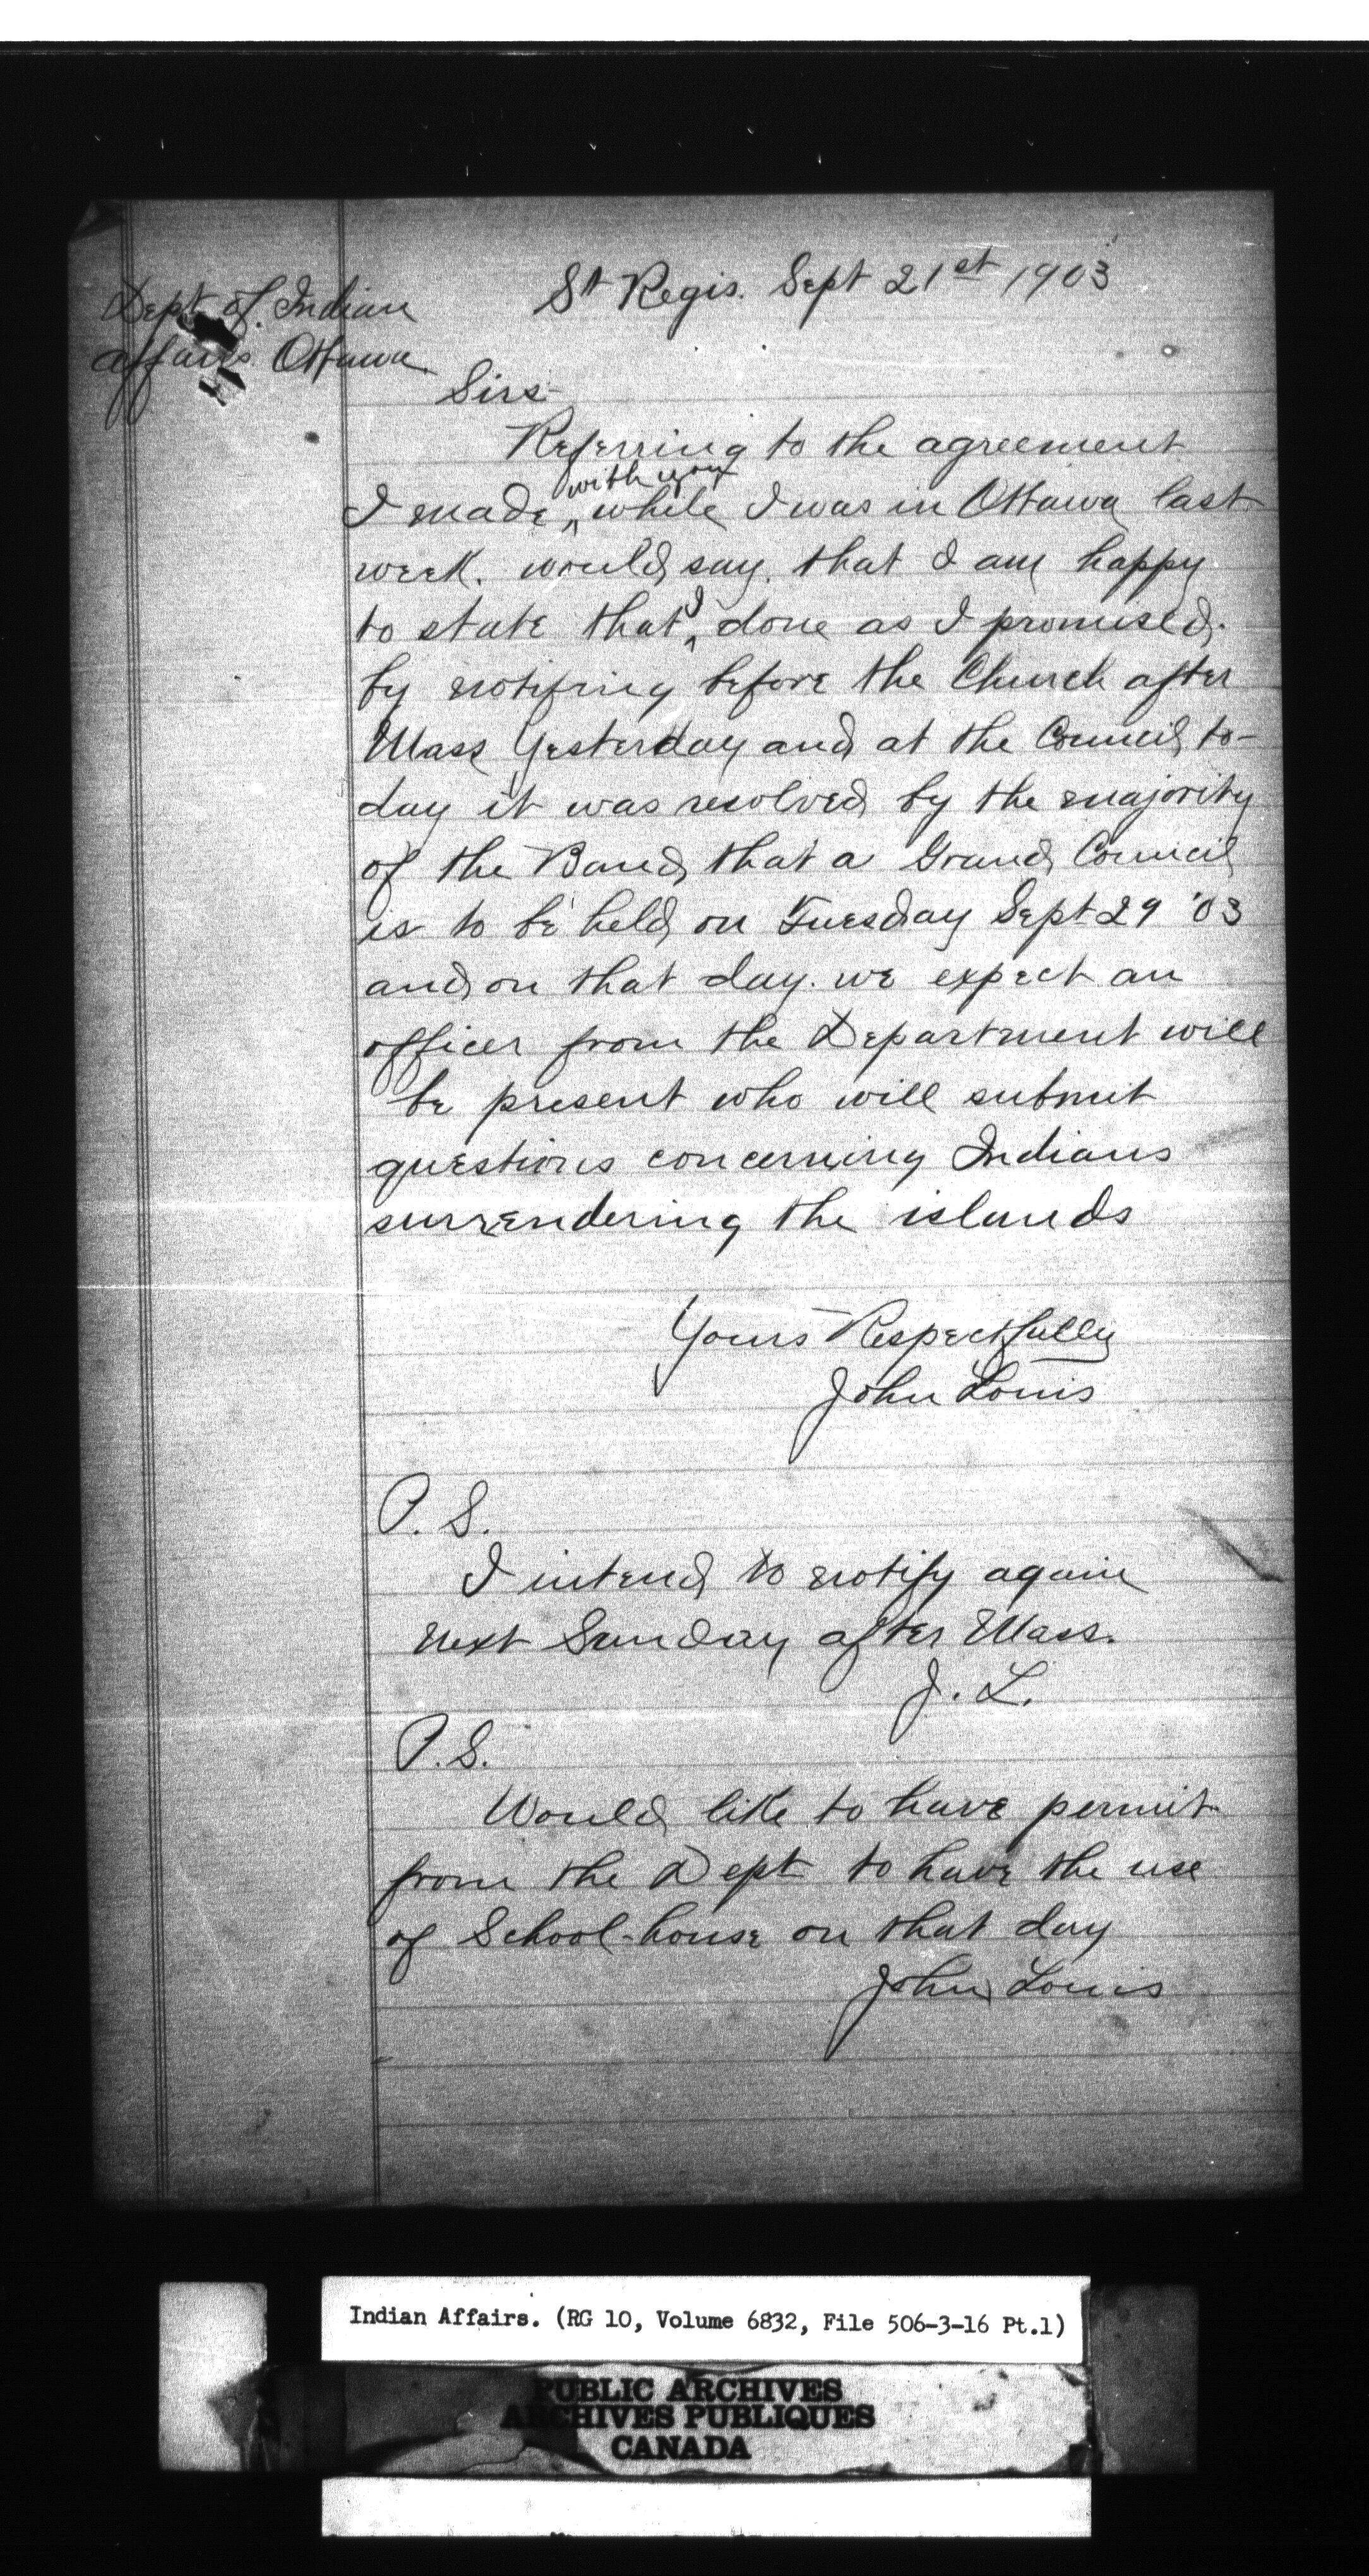 St Regis. Sept 21st 1903
Dept of Indian
affairs. Ottawa
Sirs-
Referring to the agreement
with you
I made, while I was in Ottawa last
week. would say. that I am happy
to state that I done as I promised.
by notifing before the Church after
Mass Yesterday and at the Council to-
day it was resolved by the majority
of the Band that a Grand Council
is to be held on Tuesday Sept 29 '03
and on that day. we expect an
officer from the Department will
be present who will submit
questions concerning Indians
surrendering the islands
Yours Respectfully
John Louis
P. S.
I intend to notify again
next Sunday after Mass.
J. L.
P.S.
Would like to have permit
from the Dept to have the use
of School-house on that day
John Louis
Indian Affairs. (RG 10, Volume 6832, File 506-3-16 Pt.1)
PUBLIC ARCHIVES
ARCHIVES PUBLIQUES
CANADA